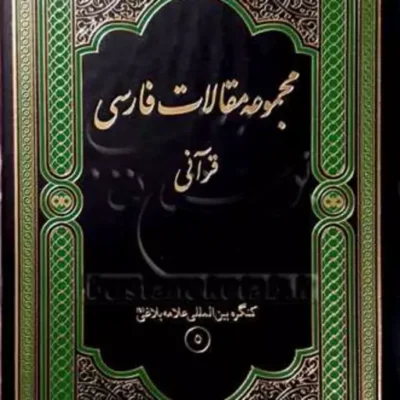 مجموعه مقالات فارسی
قرآنی
کنگره بین‌المللی علامه بلاغی
۵